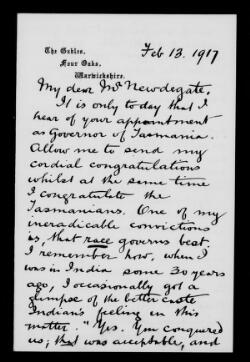 The Gables,
Four Oaks,
Warwickshire.
Feb 13. 1917
My dear Mr Newdegate,
It is only to day that I
hear of your appointment
as Governor of Tasmania.
Allow me to send my
cordial congratulations
whilst at the same time
I congratulate the
Tasmanians. One of my
ineradicable convictions
is, that race governs best.
I remember how, when I
was in India some 30 years
ago, I occasionally got a
glimpse of the better caste
Indian's feeling in this
matter. "Yes. You conquered
us; that was acceptable, and